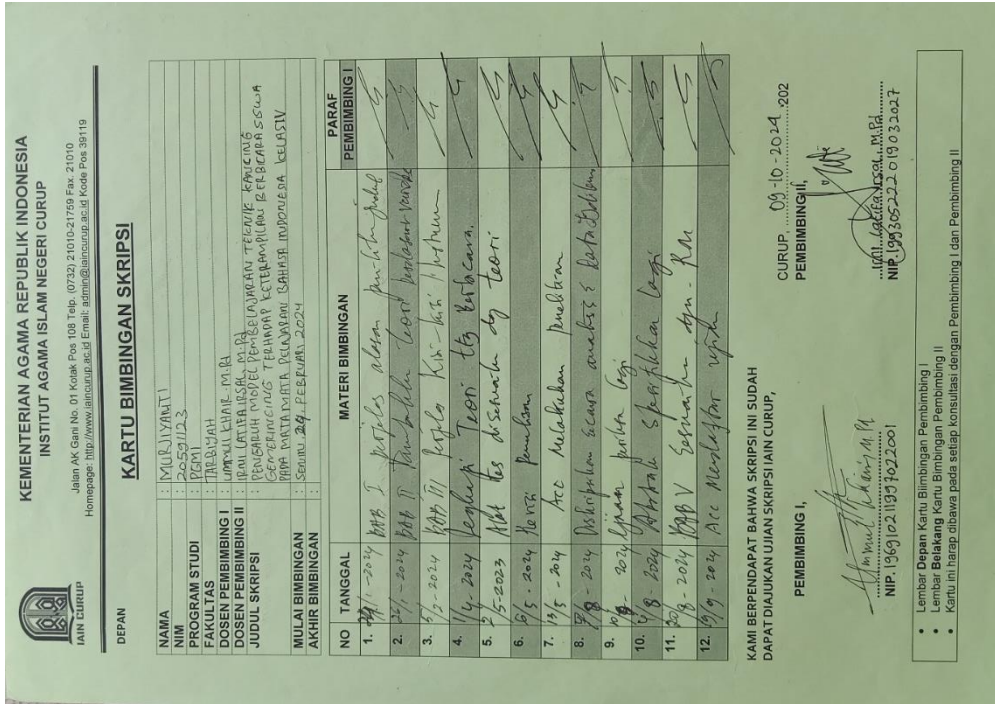 KEMENTERIAN AGAMA REPUBLIK INDONESIA
INSTITUT AGAMA ISLAM NEGERI CURUP
Jalan AK Gani No. 01 Kotak Pos 108 Telp. (0732) 21010-21759 Fax. 21010
Homepage: http://www.iaincurup.ac.id Email: admin@iaincurup.ac.id Kode Pos 39119
IAIN CURUP
DEPAN
KARTU BIMBINGAN SKRIPSI
NAMA : MURJIYANTI
NIM : 20591123
PROGRAM STUDI : PGMI
FAKULTAS : TARBIYAH
DOSEN PEMBIMBING I : UMMUL KHAIR. M.Pd
DOSEN PEMBIMBING II : IRNI LATIFA IRSAL. M.Pd
JUDUL SKRIPSI : PENGARUH MODEL PEMBELAJARAN TEKNIK KANCING
GEMERINCING TERHADAP KETERAMPILAN BERBICARA SISWA
PADA MATA PELAJARAN BAHASA INDONESIA KELAS IV
MULAI BIMBINGAN : SENIN. FEBRUARI 2024
AKHIR BIMBINGAN :
NO TANGGAL MATERI BIMBINGAN PARAF PEMBIMBING I
1. /1 -2024 BAB I perjelas alasan judul
2. /1 -2024 BAB II tambahkan teori
3. 5/2 -2024 BAB III kisi-kisi
4. 1/4 -2024 Lengkapi Teori ttg berbicara.
5. 2/5-2023 Alat tes disesuaikan dg teori
6. 6/5 -2024 Revisi penulisan
7. 13/5 -2024 Acc Melakukan penelitian
8. -2024 Dskripsikan secara
9. 2024 lagi
10. 8 2024 Abstrak spesifikkan lagi
11. /8 -2024 BAB V Sesuaikan dgn. RM
12. /9 -2024 Acc Mendaftar ujian
KAMI BERPENDAPAT BAHWA SKRIPSI INI SUDAH
DAPAT DIAJUKAN UJIAN SKRIPSI IAIN CURUP,
CURUP, 09-10-2024 202
PEMBIMBING I,
PEMBIMBING II,
Ummul Khair, M.Pd
NIP. 196910211997022001
Irni Latifa Irsal, M.Pd
NIP. 199305222019032027
• Lembar Depan Kartu Bimbingan Pembimbing I
• Lembar Belakang Kartu Bimbingan Pembimbing II
• Kartu ini harap dibawa pada setiap konsultasi dengan Pembimbing I dan Pembimbing II